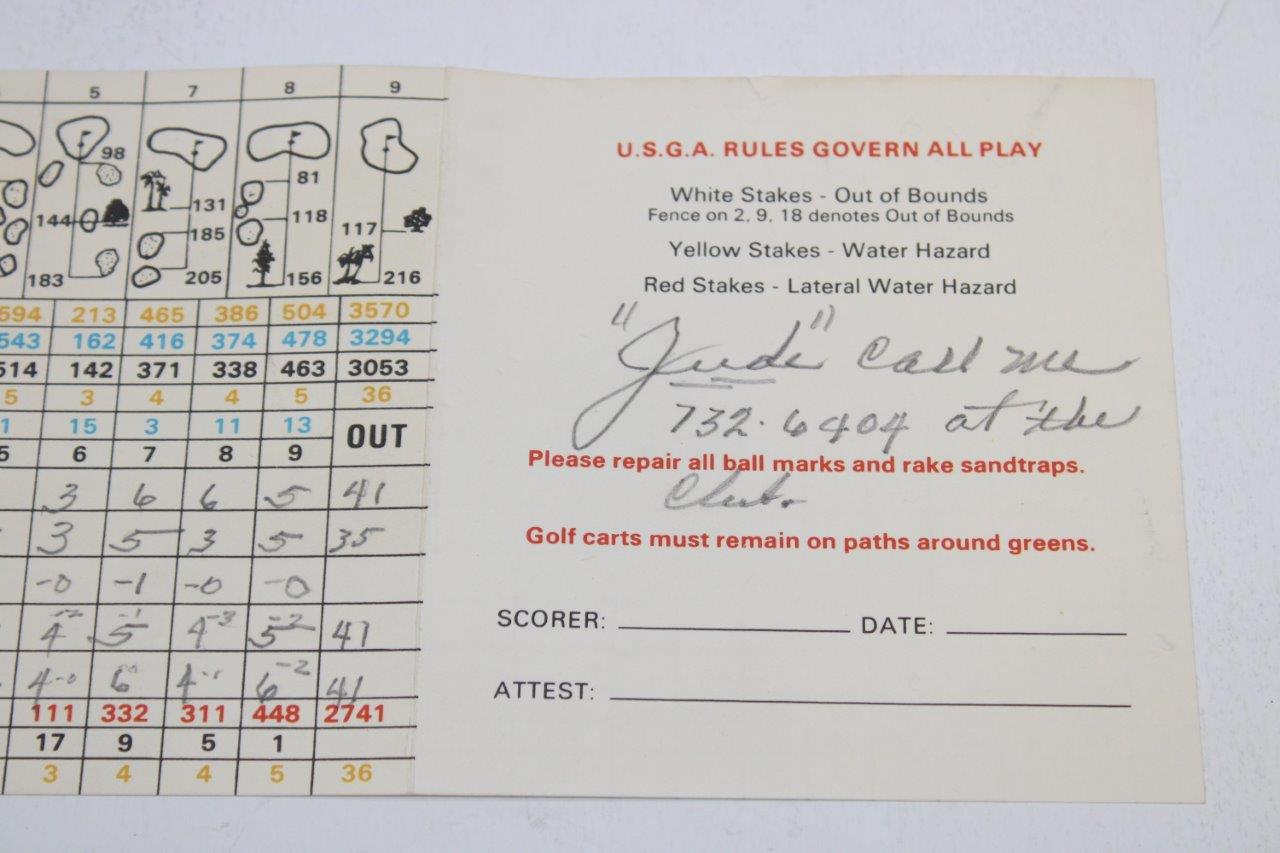 5 7 8 9
98 81
131 118
144 185 117
183 205 156 216
594 213 465 386 504 3570
543 162 416 374 478 3294
514 142 371 338 463 3053
5 3 4 4 5 36
1 15 3 11 13 OUT
5 6 7 8 9
3 6 6 5 41
3 5 3 5 35
-0 -1 -0 -0
4-2 5-1 4-3 5-2 41
4-0 6 4-1 6-2 41
111 332 311 448 2741
17 9 5 1
3 4 4 5 36
U.S.G.A. RULES GOVERN ALL PLAY
White Stakes - Out of Bounds
Fence on 2, 9, 18 denotes Out of Bounds
Yellow Stakes - Water Hazard
Red Stakes - Lateral Water Hazard
"Jude" Call me
732-6404 at the
Please repair all ball marks and rake sandtraps.
Club.
Golf carts must remain on paths around greens.
SCORER: DATE:
ATTEST: